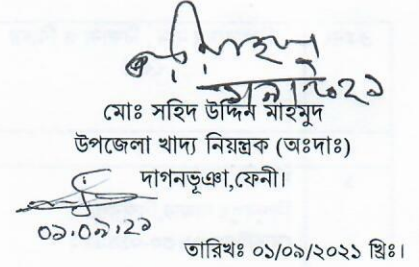 মোঃ সহিদ উদ্দিন মাহমুদ
উপজেলা খাদ্য নিয়ন্ত্রক (অঃদাঃ)
দাগনভূঞা,ফেনী।
০১.০৯.২১
তারিখঃ ০১/০৯/২০২১ খ্রিঃ।